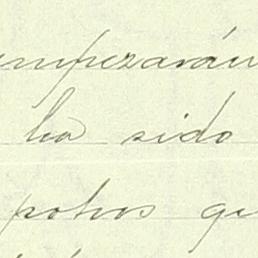 empezarán
ha sido
potros qu